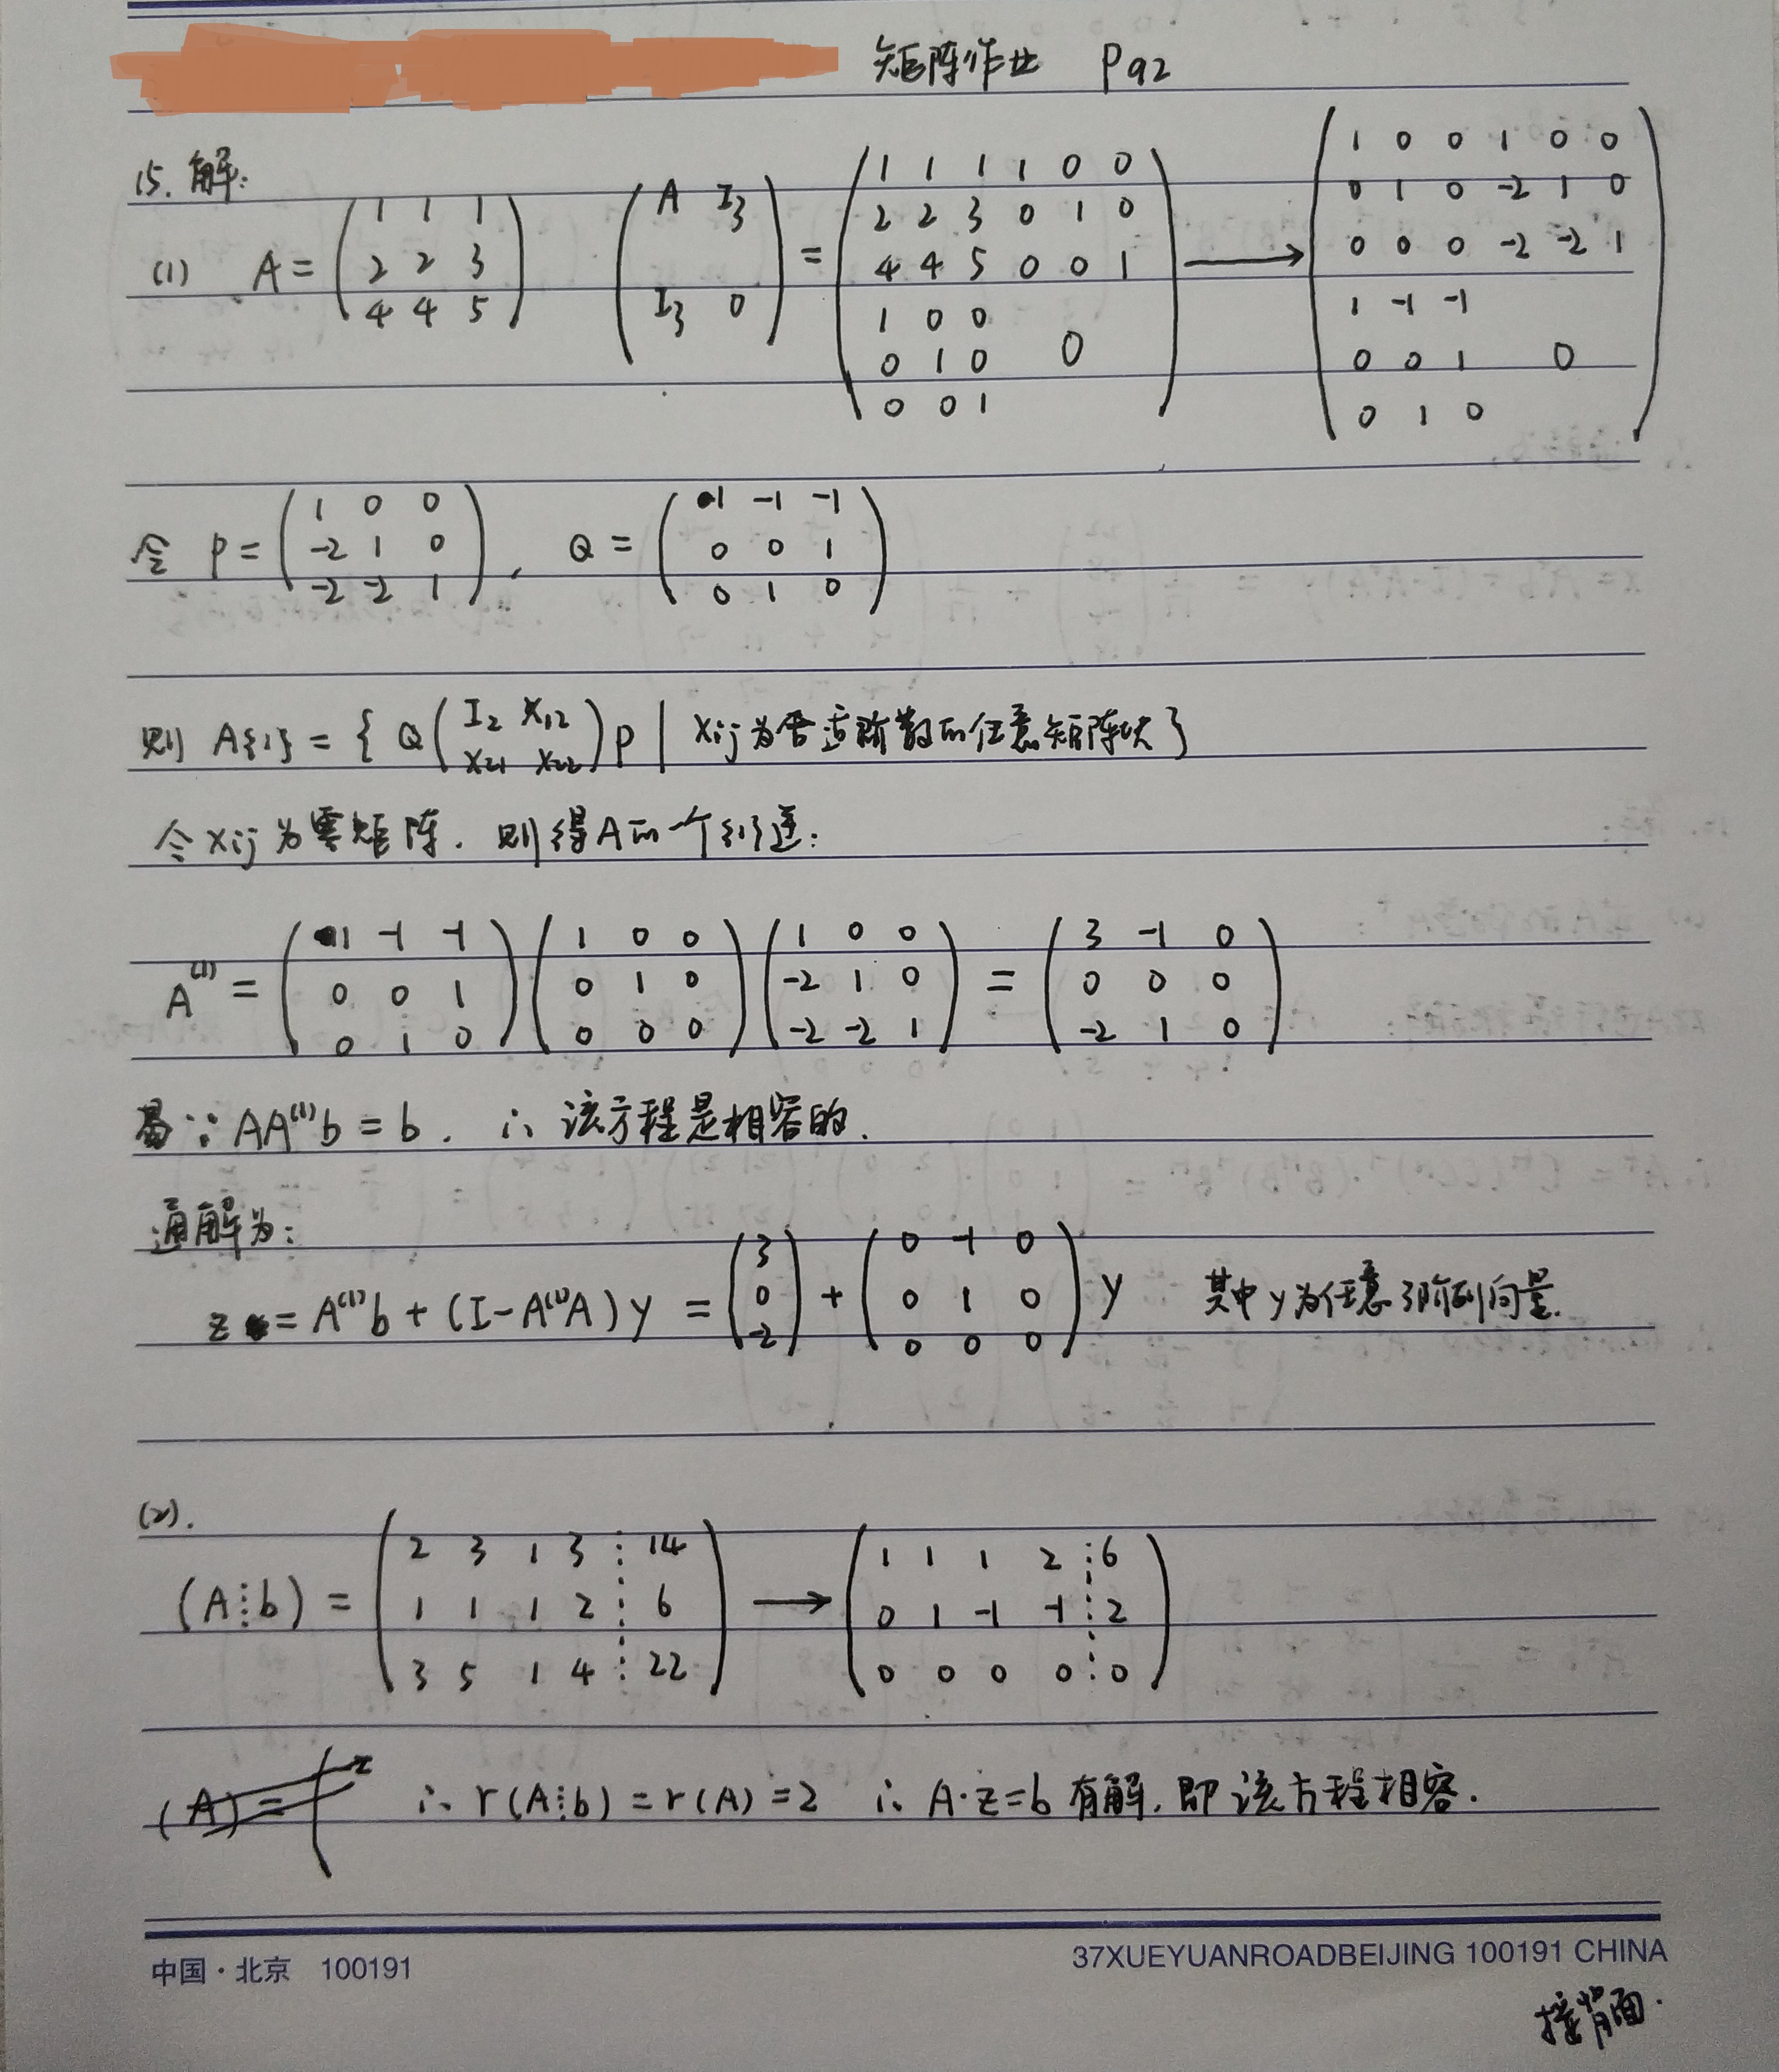 矩阵作业 P92
15. 解:
(1) A = (1 1 1; 2 2 3; 4 4 5) (A I₃; I₃ 0) = (1 1 1 1 0 0; 2 2 3 0 1 0; 4 4 5 0 0 1; 1 0 0; 0 1 0 0; 0 0 1) → (1 0 0 1 0 0; 0 1 0 -2 1 0; 0 0 0 -2 -2 1; 1 -1 -1; 0 0 1 0; 0 1 0)
令 P = (1 0 0; -2 1 0; -2 -2 1), Q = (1 -1 -1; 0 0 1; 0 1 0)
则 A{1} = { Q (I₂ X₁₂; X₂₁ X₂₂) P | Xij为合适阶数的任意矩阵块 }
令Xij为零矩阵. 则得A的一个{1}逆:
A⁽¹⁾ = (1 -1 -1; 0 0 1; 0 1 0) (1 0 0; 0 1 0; 0 0 0) (1 0 0; -2 1 0; -2 -2 1) = (3 -1 0; 0 0 0; -2 1 0)
易∵ AA⁽¹⁾b = b. ∴ 该方程是相容的.
通解为:
z = A⁽¹⁾b + (I-A⁽¹⁾A) y = (3; 0; -2) + (0 -1 0; 0 1 0; 0 0 0) y 其中y为任意3阶列向量.
(2).
(A⋮b) = (2 3 1 3 ⋮ 14; 1 1 1 2 ⋮ 6; 3 5 1 4 ⋮ 22) → (1 1 1 2 ⋮ 6; 0 1 -1 -1 ⋮ 2; 0 0 0 0 ⋮ 0)
∴ r(A⋮b) = r(A) = 2 ∴ A·z=b 有解, 即该方程相容.
中国·北京 100191
37XUEYUANROADBEIJING 100191 CHINA
接背面.